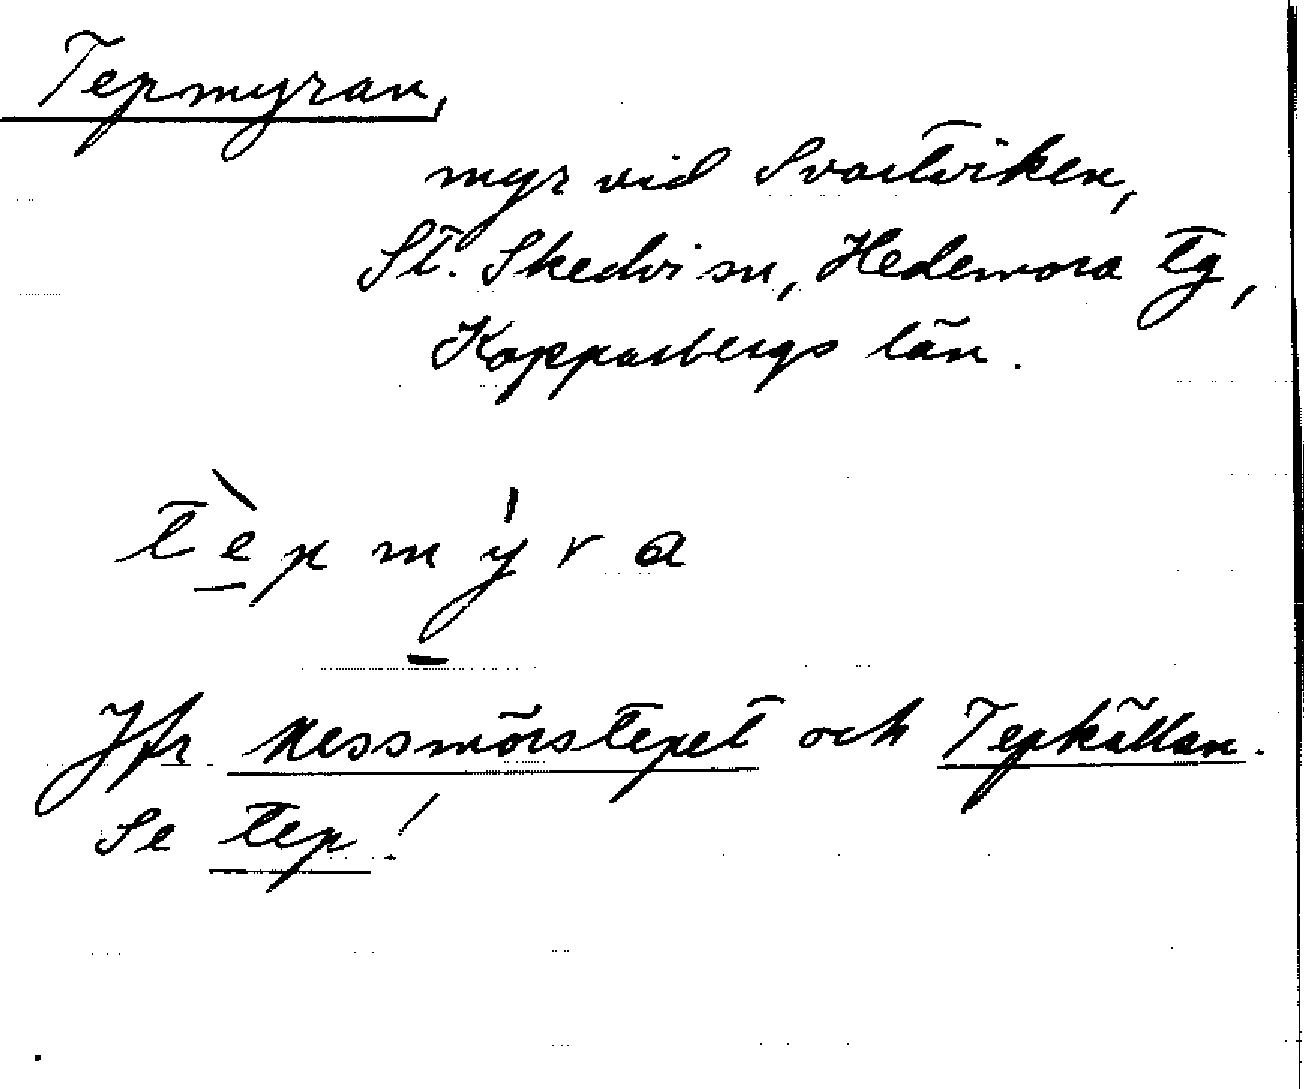 Tepmyran,
myr vid Svartviken,
St. Skedvi sn, Hedemora tg,
Kopparbergs län.
tèpmy̍ra
Jfr Messmörstepet och Tepkällan.
Se tep!